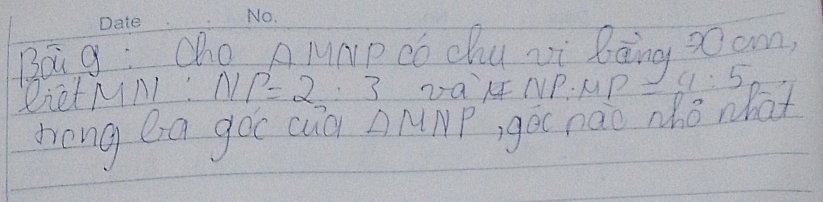 Date No.
Bài 9: Cho ΔMNP có chu vi bằng 70 cm,
biết MN : NP = 2 : 3 và NP : MP = 4 : 5.
trong ba góc của ΔMNP, góc nào nhỏ nhất